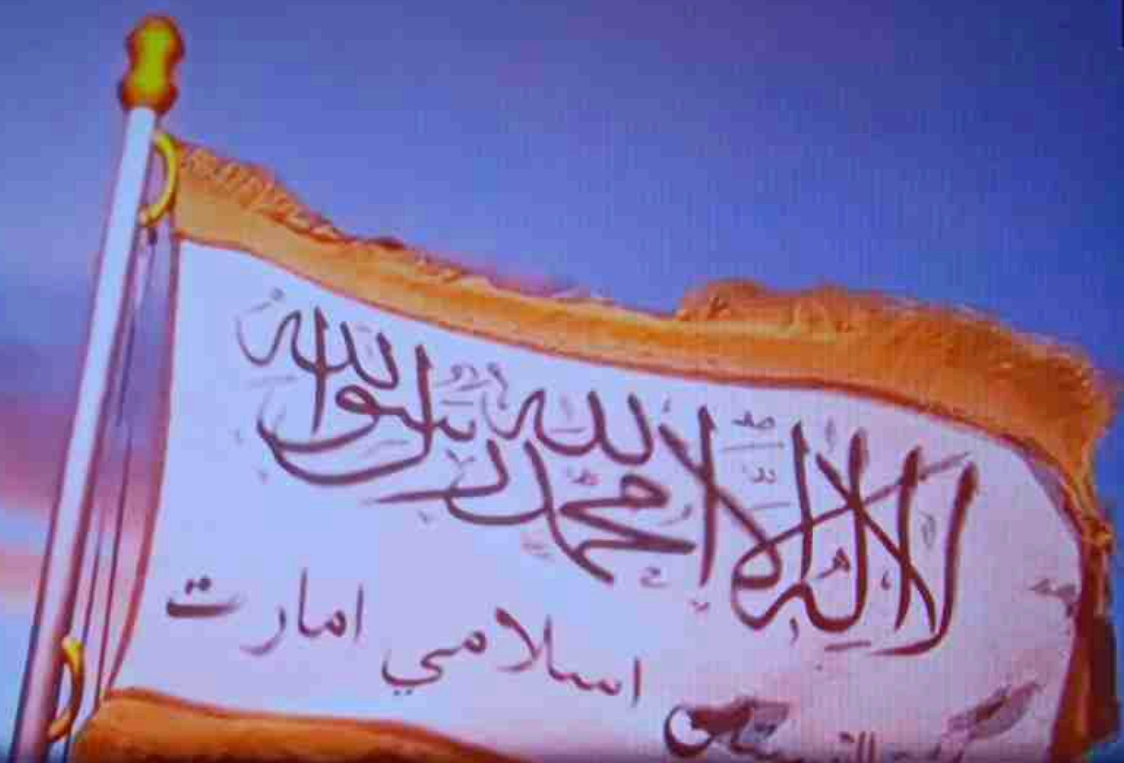 لا اله الا الله محمد رسول الله
اسلامي امارت